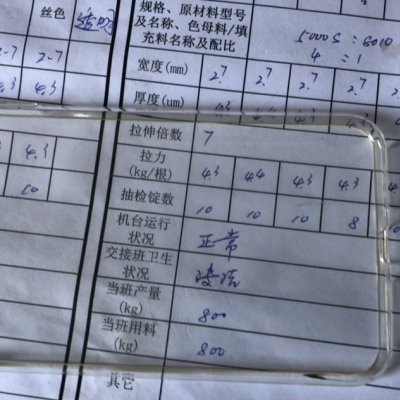 丝色 透明 规格、原材料型号
及名称、色母料/填
充料名称及配比 5000S : 8010
4 : 1
2.7 2.7 宽度(mm) 2.7 2.7 2.7 2.7
4.3 4.3 厚度(um) 4.3 4.3
拉伸倍数 7
4.3 拉力
(kg/根) 4.3 4.4 4.3 4.3
10 抽检锭数 10 10 10 8
机台运行
状况 正常
交接班卫生
状况 清洁
当班产量
(kg) 800
当班用料
(kg) 800
其它